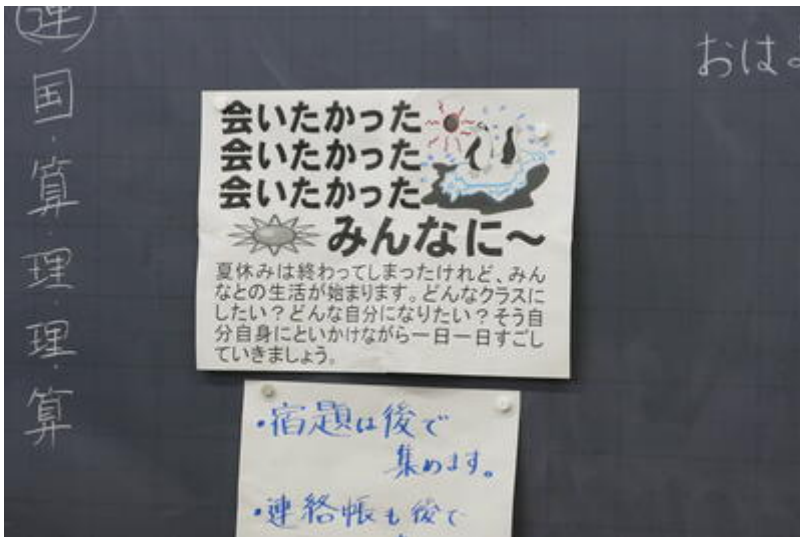 連
国・算・理・理・算
おはよ
会いたかった
会いたかった
会いたかった
みんなに～
夏休みは終わってしまったけれど、みん
なとの生活が始まります。どんなクラスに
したい？どんな自分になりたい？そう自
分自身にといかけながら一日一日すごし
ていきましょう。
・宿題は後で
集めます。
・連絡帳も後で